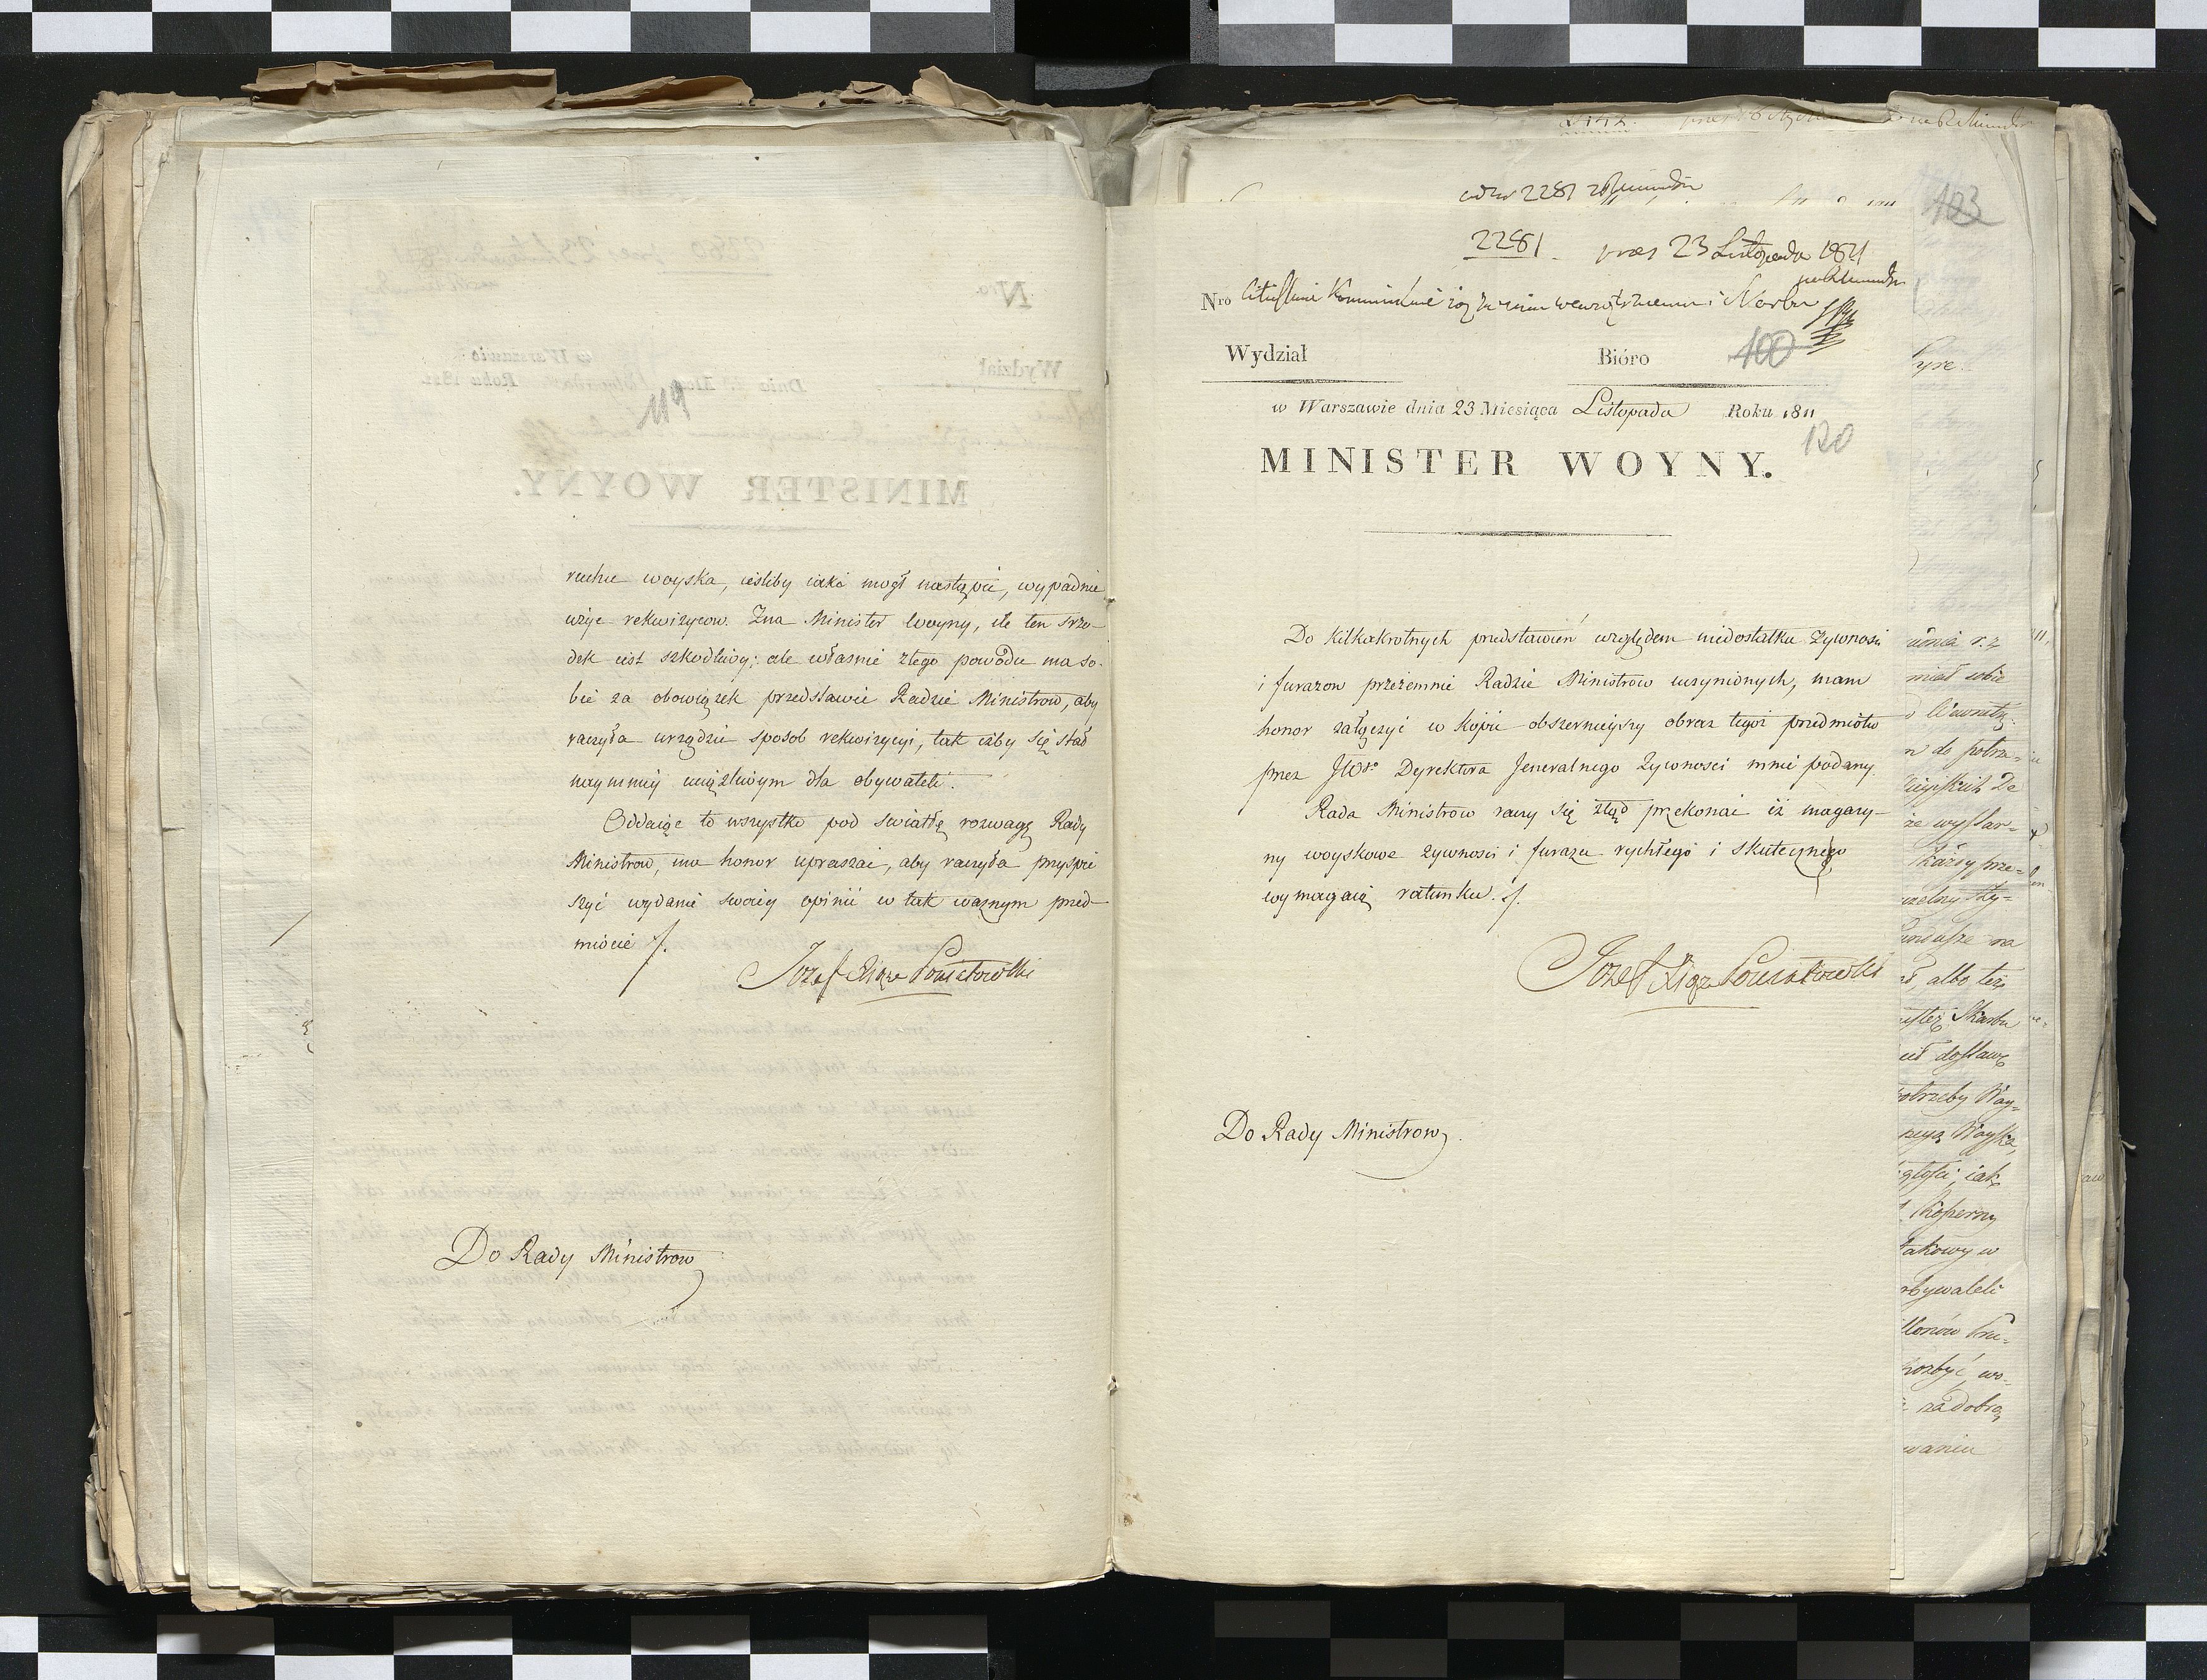 119
ruchu woyska, ieśliby iaki mogł nastąpić, wypadnie
użyć rekwizycow. Zna Minister Woyny, ile ten śrzo-
dek iest szkodliwy; ale właśnie ztego powodu ma so-
bie za obowiązek przedstawić Radzie Ministrow, aby
raczyła urządzić sposob rekwizycyi, tak iżby się stał
naymniey uciążliwym dla obywateli.
Oddaiąc to wszystko pod światłą rozwagę Rady
Ministrow, ma honor upraszać, aby raczyła przyspie
szyć wydanie swoiey opinii w tak ważnym przed-
miocie
Jozef Xiąże Poniatowski
Do Rady Ministrow
2281
103
2281. pras 23 Listopada 1811
Nro
Wydział Bióro 100
w Warszawie dnia 23 Miesiąca Listopada Roku 1811
120
MINISTER WOYNY.
Do kilkakrotnych przedstawień względem niedostatku żywności
i furażow przezemnie Radzie Ministrow uczynionych, mam
honor załączyć w kopii obszernieyszy obraz tegoż przedmiotu
przez JWgo Dyrektora Jeneralnego Żywności mnie podany.
Rada Ministrow raczy się ztąd przekonać iż magazy-
ny woyskowe żywności i furażu rychłego i skutecznego
wymagaią ratunku.
Jozef Xiąże Poniatowski
Do Rady Ministrow.
albo też
Skarbu
dostawę
Woyska,
iak
takowy w
obywateli